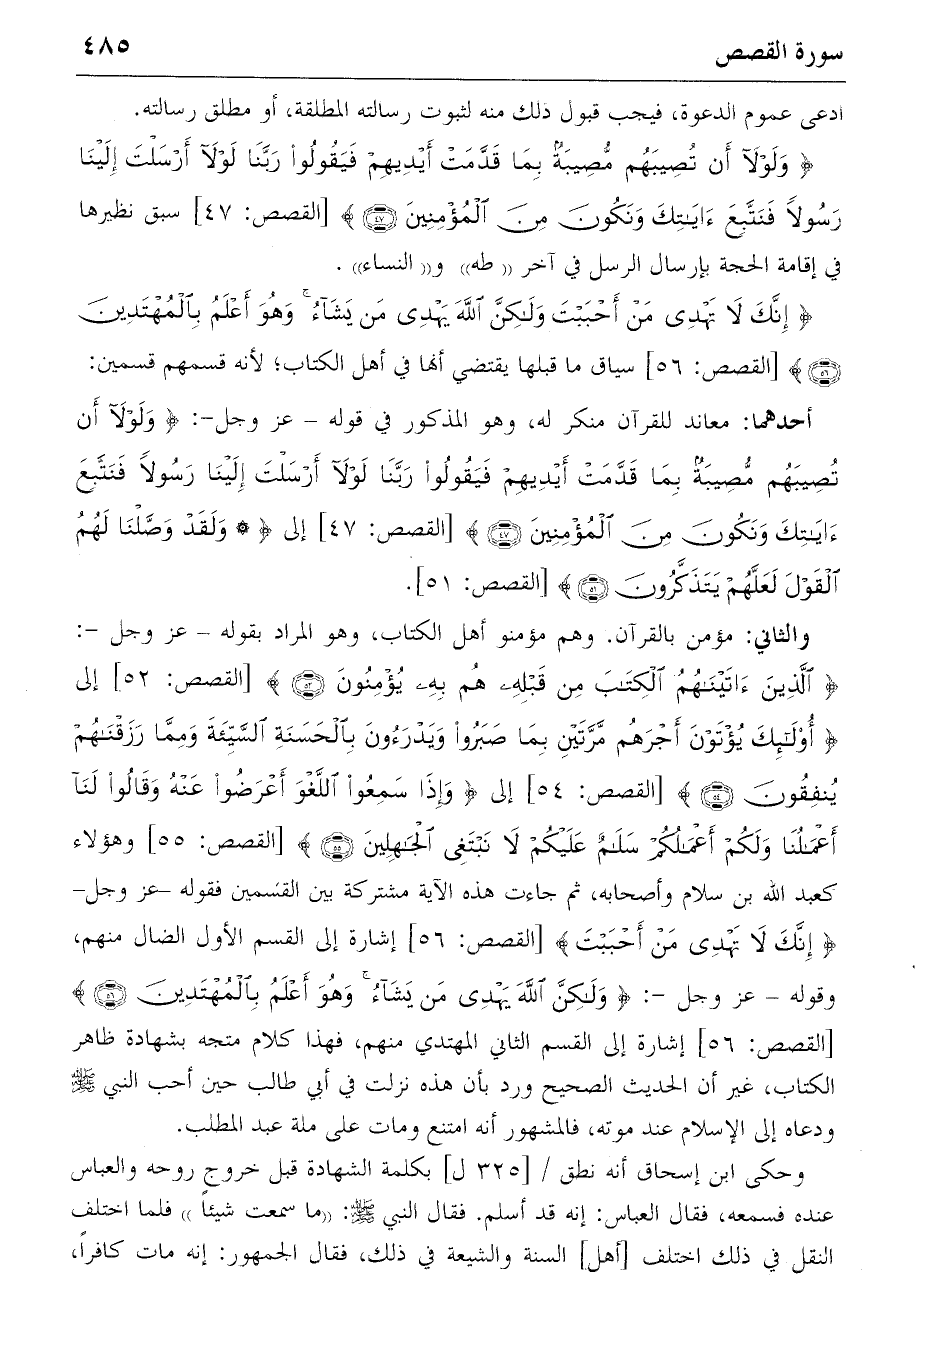 سورة القصص ٤٨٥
ادعى عموم الدعوة، فيجب قبول ذلك منه لثبوت رسالته المطلقة، أو مطلق رسالته.
﴿ وَلَوْلَآ أَن تُصِيبَهُم مُّصِيبَةٌۢ بِمَا قَدَّمَتْ أَيْدِيهِمْ فَيَقُولُوا۟ رَبَّنَا لَوْلَآ أَرْسَلْتَ إِلَيْنَا
رَسُولاً فَنَتَّبِعَ ءَايَـٰتِكَ وَنَكُونَ مِنَ ٱلْمُؤْمِنِينَ ٤٧ ﴾ [القصص: ٤٧] سبق نظيرها
في إقامة الحجة بإرسال الرسل في آخر ((طه)) و((النساء)).
﴿ إِنَّكَ لَا تَهْدِى مَنْ أَحْبَبْتَ وَلَـٰكِنَّ ٱللَّهَ يَهْدِى مَن يَشَآءُ ۚ وَهُوَ أَعْلَمُ بِٱلْمُهْتَدِينَ
٥٦ ﴾ [القصص: ٥٦] سياق ما قبلها يقتضي أنها في أهل الكتاب؛ لأنه قسمهم قسمين:
أحدهما: معاند للقرآن منكر له، وهو المذكور في قوله – عز وجل–: ﴿ وَلَوْلَآ أَن
تُصِيبَهُم مُّصِيبَةٌۢ بِمَا قَدَّمَتْ أَيْدِيهِمْ فَيَقُولُوا۟ رَبَّنَا لَوْلَآ أَرْسَلْتَ إِلَيْنَا رَسُولاً فَنَتَّبِعَ
ءَايَـٰتِكَ وَنَكُونَ مِنَ ٱلْمُؤْمِنِينَ ٤٧ ﴾ [القصص: ٤٧] إلى ﴿ * وَلَقَدْ وَصَّلْنَا لَهُمُ
ٱلْقَوْلَ لَعَلَّهُمْ يَتَذَكَّرُونَ ٥١ ﴾ [القصص: ٥١].
والثاني: مؤمن بالقرآن. وهم مؤمنو أهل الكتاب، وهو المراد بقوله – عز وجل –:
﴿ ٱلَّذِينَ ءَاتَيْنَـٰهُمُ ٱلْكِتَـٰبَ مِن قَبْلِهِۦ هُم بِهِۦ يُؤْمِنُونَ ٥٢ ﴾ [القصص: ٥٢] إلى
﴿ أُو۟لَـٰٓئِكَ يُؤْتَوْنَ أَجْرَهُم مَّرَّتَيْنِ بِمَا صَبَرُوا۟ وَيَدْرَءُونَ بِٱلْحَسَنَةِ ٱلسَّيِّئَةَ وَمِمَّا رَزَقْنَـٰهُمْ
يُنفِقُونَ ٥٤ ﴾ [القصص: ٥٤] إلى ﴿ وَإِذَا سَمِعُوا۟ ٱللَّغْوَ أَعْرَضُوا۟ عَنْهُ وَقَالُوا۟ لَنَآ
أَعْمَـٰلُنَا وَلَكُمْ أَعْمَـٰلُكُمْ سَلَـٰمٌ عَلَيْكُمْ لَا نَبْتَغِى ٱلْجَـٰهِلِينَ ٥٥ ﴾ [القصص: ٥٥] وهؤلاء
كعبد الله بن سلام وأصحابه، ثم جاءت هذه الآية مشتركة بين القسمين فقوله –عز وجل–
﴿ إِنَّكَ لَا تَهْدِى مَنْ أَحْبَبْتَ ﴾ [القصص: ٥٦] إشارة إلى القسم الأول الضال منهم،
وقوله – عز وجل –: ﴿ وَلَـٰكِنَّ ٱللَّهَ يَهْدِى مَن يَشَآءُ ۚ وَهُوَ أَعْلَمُ بِٱلْمُهْتَدِينَ ٥٦ ﴾
[القصص: ٥٦] إشارة إلى القسم الثاني المهتدي منهم، فهذا كلام متجه بشهادة ظاهر
الكتاب، غير أن الحديث الصحيح ورد بأن هذه نزلت في أبي طالب حين أحب النبي ﷺ
ودعاه إلى الإسلام عند موته، فالمشهور أنه امتنع ومات على ملة عبد المطلب.
وحكى ابن إسحاق أنه نطق / [٣٢٥ ل] بكلمة الشهادة قبل خروج روحه والعباس
عنده فسمعه، فقال العباس: إنه قد أسلم. فقال النبي ﷺ: ((ما سمعت شيئاً)) فلما اختلف
النقل في ذلك اختلف [أهل] السنة والشيعة في ذلك، فقال الجمهور: إنه مات كافراً،